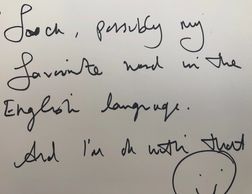 possibly my
favourite word in the
English language.
And I'm ok with that